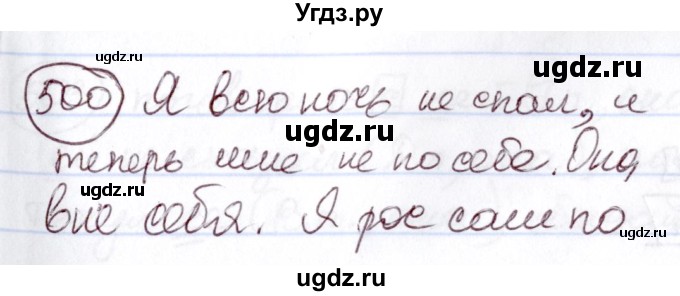 Угдз.ру
ugdz.ru
ugdz.ru
500 Я всю ночь не спал, и
ugdz.ru
теперь мне не по себе. Она
ugdz.ru
ugdz.ru
вне себя. Я рос сам по
ugdz.ru
ugdz.ru